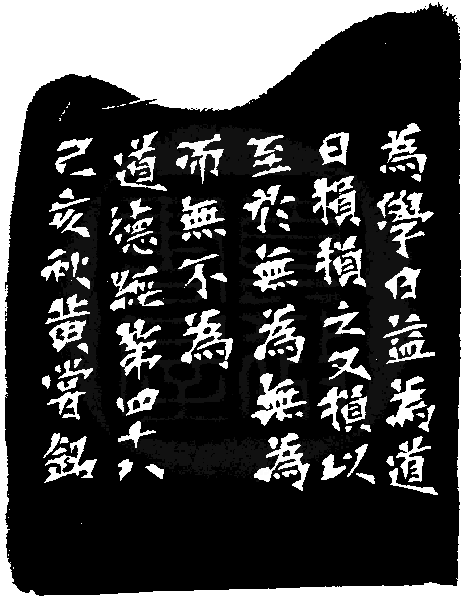 為學日益為道
日損損之又損以
至於無為無為
而無不為
道德經第四十八
己亥秋黃嘗銘